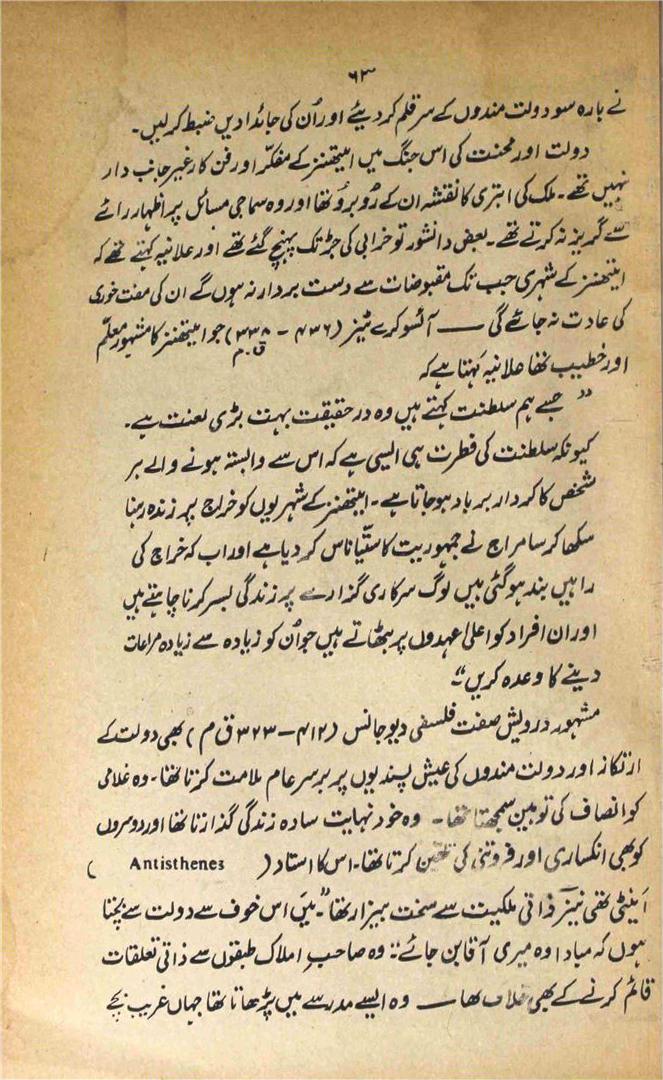 ۶۳
نے بارہ سو دولت مندوں کے سر قلم کر دیئے اور اُن کی جائدادیں ضبط کر لیں۔
دولت اور محنت کی اس جنگ میں ایتھنز کے مفکّر اور فن کار غیر جانب دار
نہیں تھے۔ ملک کی ابتری کا نقشہ ان کے رُوبرُو تھا اور وہ سماجی مسائل پر اظہار رائے
سے گریز نہ کرتے تھے۔ بعض دانشور تو خرابی کی جڑ تک پہنچ گئے تھے اور علانیہ کہتے تھے کہ
ایتھنز کے شہری جب تک مقبوضات سے دست بردار نہ ہوں گے ان کی مفت خوری
کی عادت نہ جائے گی — آئسو کرے ٹیز (۴۳۶ - ۳۳۸ ق۔م) جو ایتھنز کا مشہور معلّم
اور خطیب تھا علانیہ کہتا ہے کہ
”جسے ہم سلطنت کہتے ہیں وہ در حقیقت بہت بڑی لعنت ہے۔
کیونکہ سلطنت کی فطرت ہی ایسی ہے کہ اس سے وابستہ ہونے والے ہر
شخص کا کردار برباد ہو جاتا ہے۔ ایتھنز کے شہریوں کو خراج پر زندہ رہنا
سکھا کر سامراج نے جمہوریت کا ستّیاناس کر دیا ہے اور اب کہ خراج کی
راہیں بند ہو گئی ہیں لوگ سرکاری گذارے پر زندگی بسر کرنا چاہتے ہیں
اور ان افراد کو اعلیٰ عہدوں پر بٹھاتے ہیں جو اُن کو زیادہ سے زیادہ مراعات
دینے کا وعدہ کریں“۔
مشہور درویش صفت فلسفی دیو جانس (۴۱۲ – ۳۲۳ ق م) بھی دولت کے
ارتکاز اور دولت مندوں کی عیش پسندیوں پر بر سر عام ملامت کرتا تھا۔ وہ غلامی
کو انصاف کی توہین سمجھتا تھا۔ وہ خود نہایت سادہ زندگی گذارتا تھا اور دوسروں
کو بھی انکساری اور فروتنی کی تلقین کرتا تھا۔ اس کا استاد (Antisthenes)
اَینٹی تھی نیز ذاتی ملکیت سے سخت بیزار تھا ”میں اس خوف سے دولت سے بچتا
ہوں کہ مبادا وہ میری آقا بن جائے“۔ وہ صاحبِ املاک طبقوں سے ذاتی تعلقات
قائم کرنے کے بھی خلاف تھا — وہ ایسے مدرسے میں پڑھاتا تھا جہاں غریب بچے